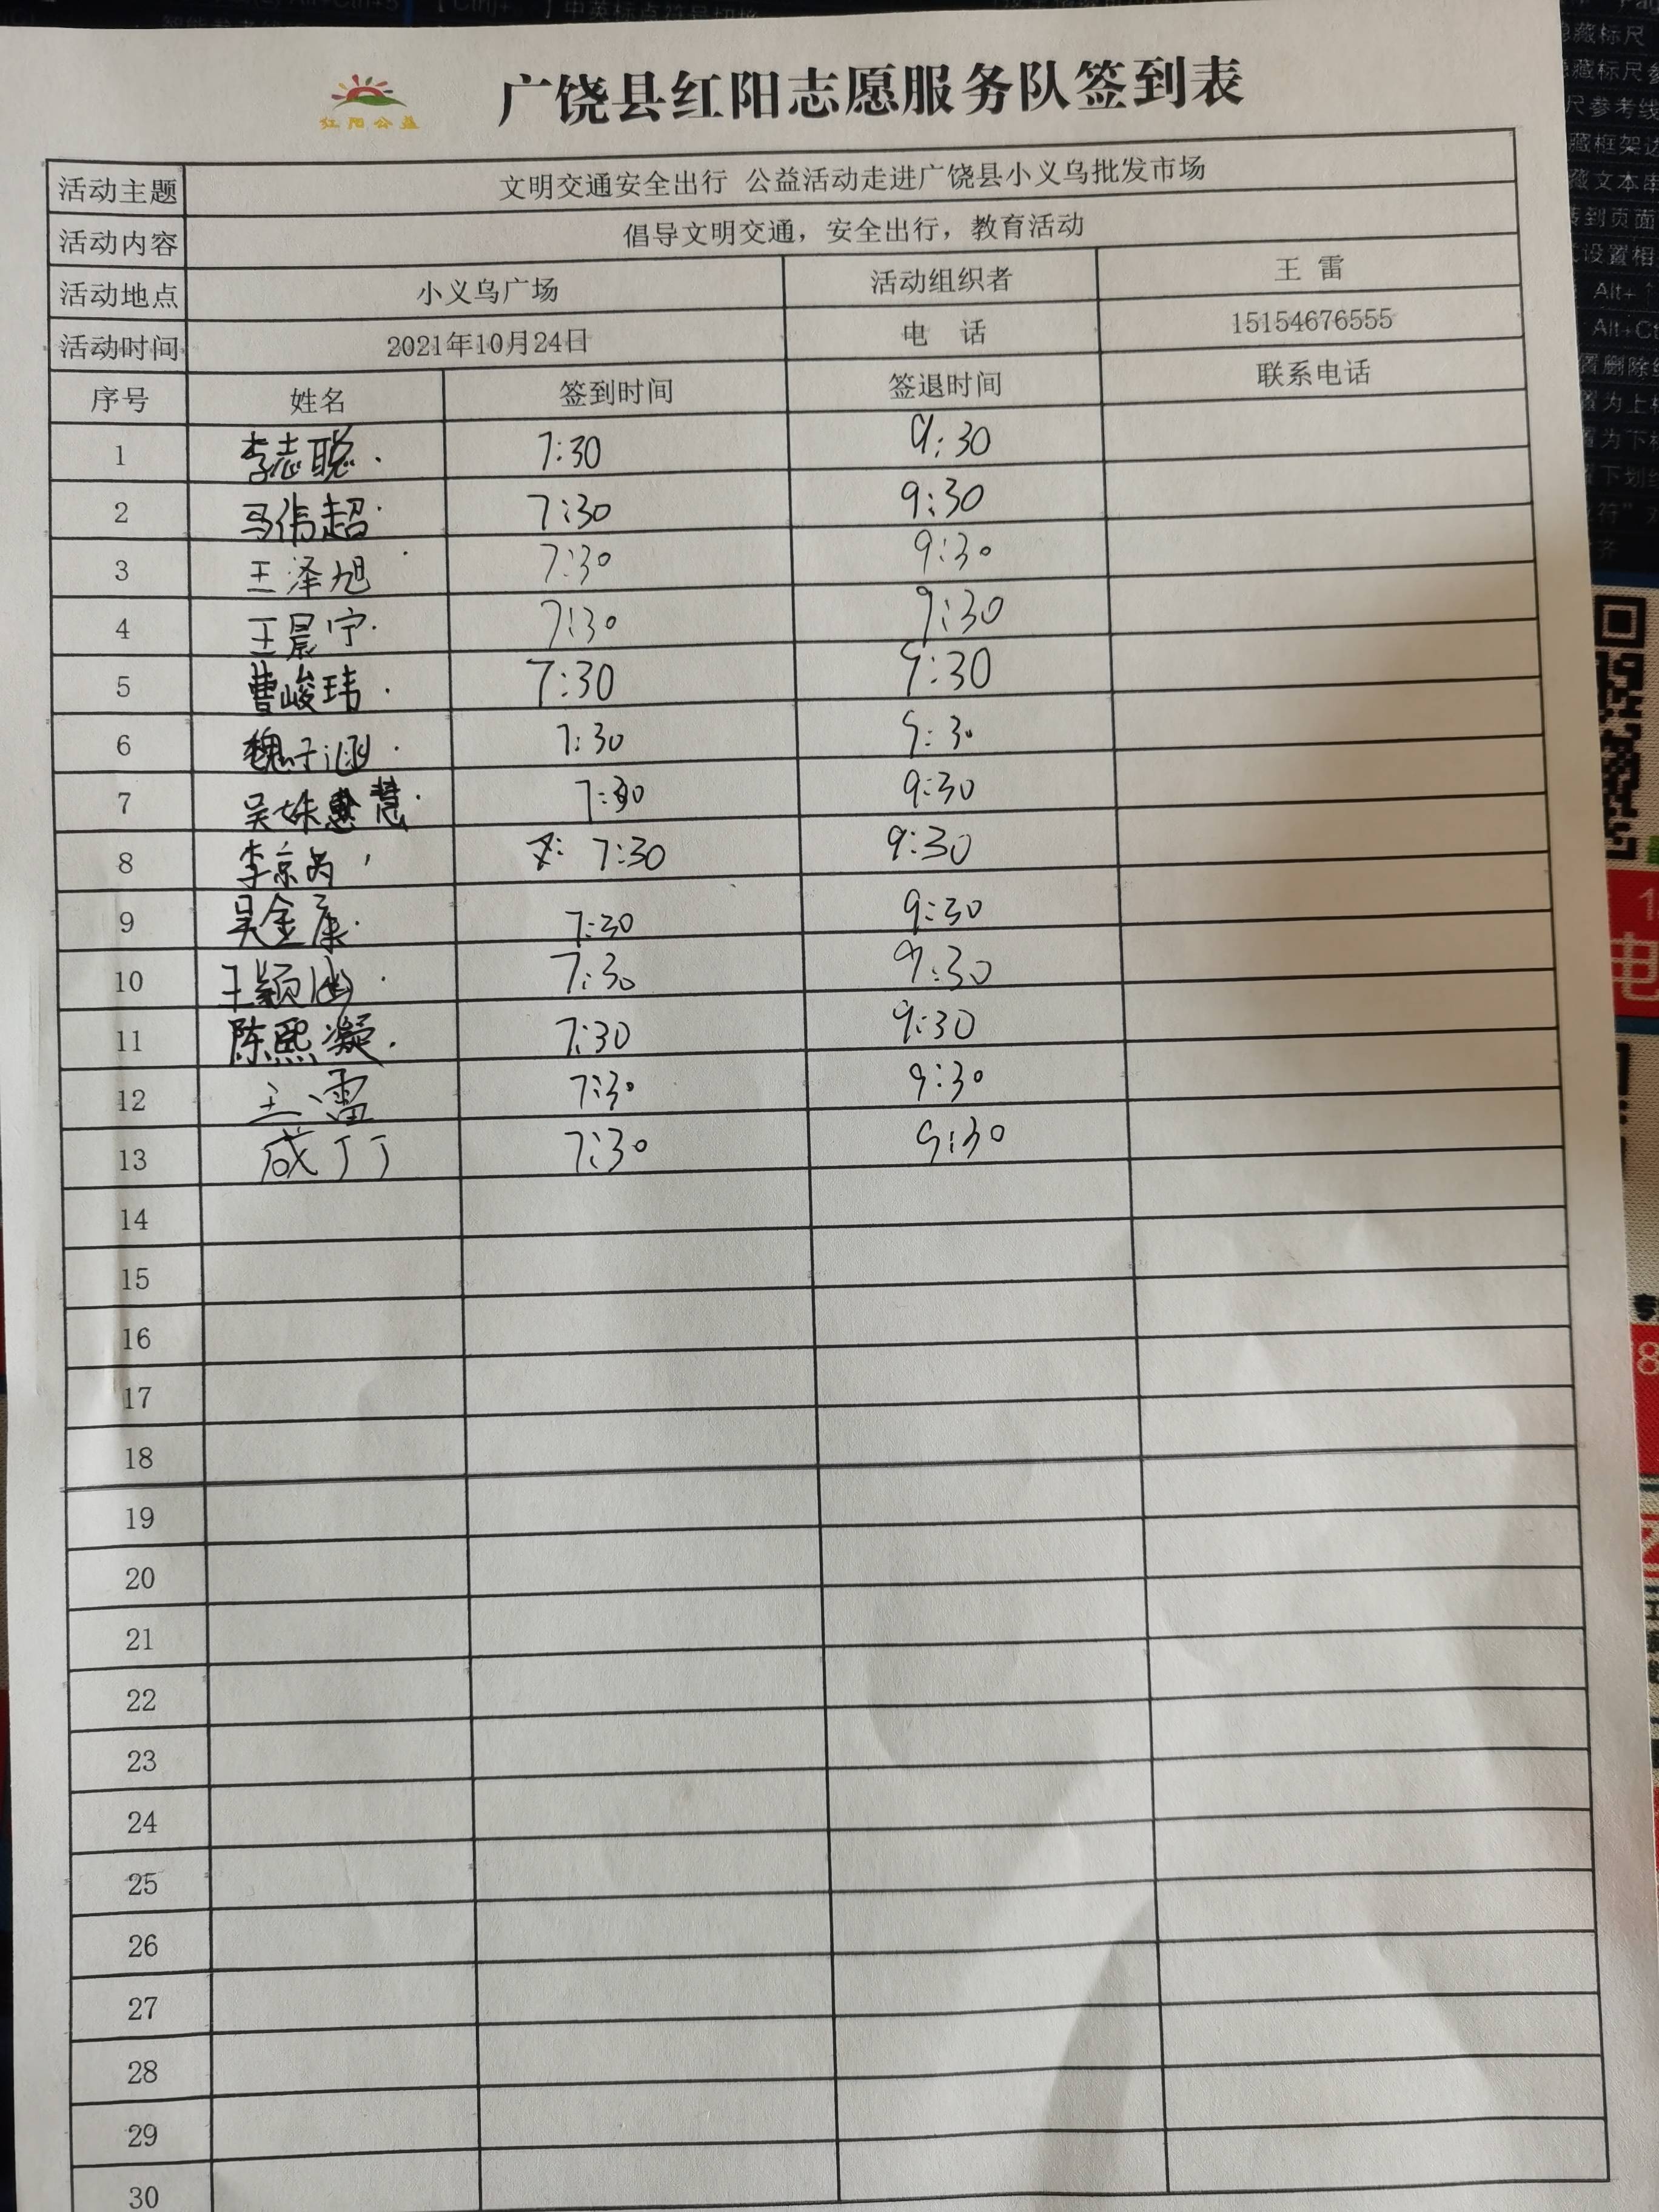 红阳公益
广饶县红阳志愿服务队签到表
活动主题 文明交通安全出行 公益活动走进广饶县小义乌批发市场
活动内容 倡导文明交通，安全出行，教育活动
活动地点 小义乌广场 活动组织者 王 雷
活动时间 2021年10月24日 电 话 15154676555
序号 姓名 签到时间 签退时间 联系电话
1 李志聪 7:30 9:30
2 马伟超 7:30 9:30
3 王泽旭 7:30 9:30
4 王晨宁 7:30 9:30
5 曹峻玮 7:30 9:30
6 魏子涵 7:30 9:30
7 吴姝慧 7:30 9:30
8 李京 7:30 9:30
9 吴金康 7:30 9:30
10 王颖涵 7:30 9:30
11 陈熙凝 7:30 9:30
12 王雷 7:30 9:30
13 成丁丁 7:30 9:30
14
15
16
17
18
19
20
21
22
23
24
25
26
27
28
29
30